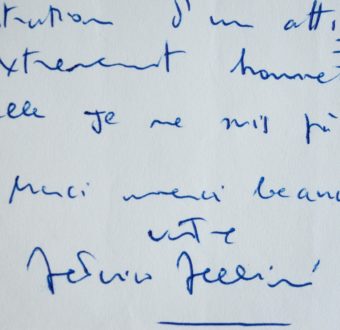 tration d'un atti
xtremement honne
elle je ne suis pa
Merci merci beauc
votre
Federico Fellini